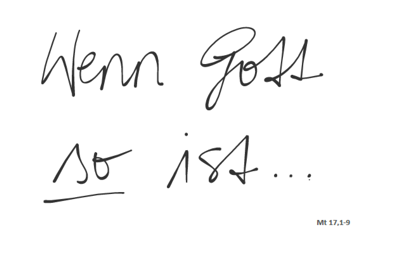 Wenn Gott
so ist...
Mt 17,1-9